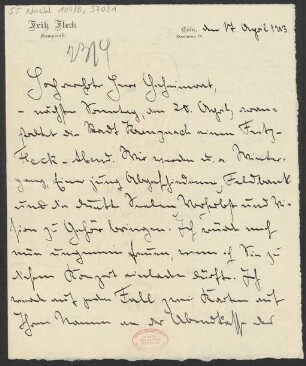 55 Nachl 100/B, 37021
Fritz Fleck
Komponist
Cöln, den 17 April 1913.
Hochverehrter Herr Geheimrat,
nächsten Sonntag, den 20. April, veran-
staltet die Stadt Kreuznach einen Fritz-
Fleck-Abend. Wir werden u. a. Winter-
gang, Einer jung Abgeschiedenen, Feldbank
und die dunkle
zu Gehör bringen. Ich würde mich
nun ungemein freuen, wenn ich Sie zu
diesem Konzert einladen dürfte. Ich
werde auf jeden Fall zwei Karten auf
Ihren Namen an der Abendkasse der